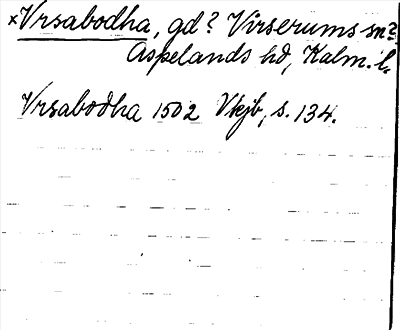 ×Vrsabodha, gd? Virserums sn?
Aspelands hd, Kalm. l.
Vrsabodha 1502 Vkjb, s. 134.